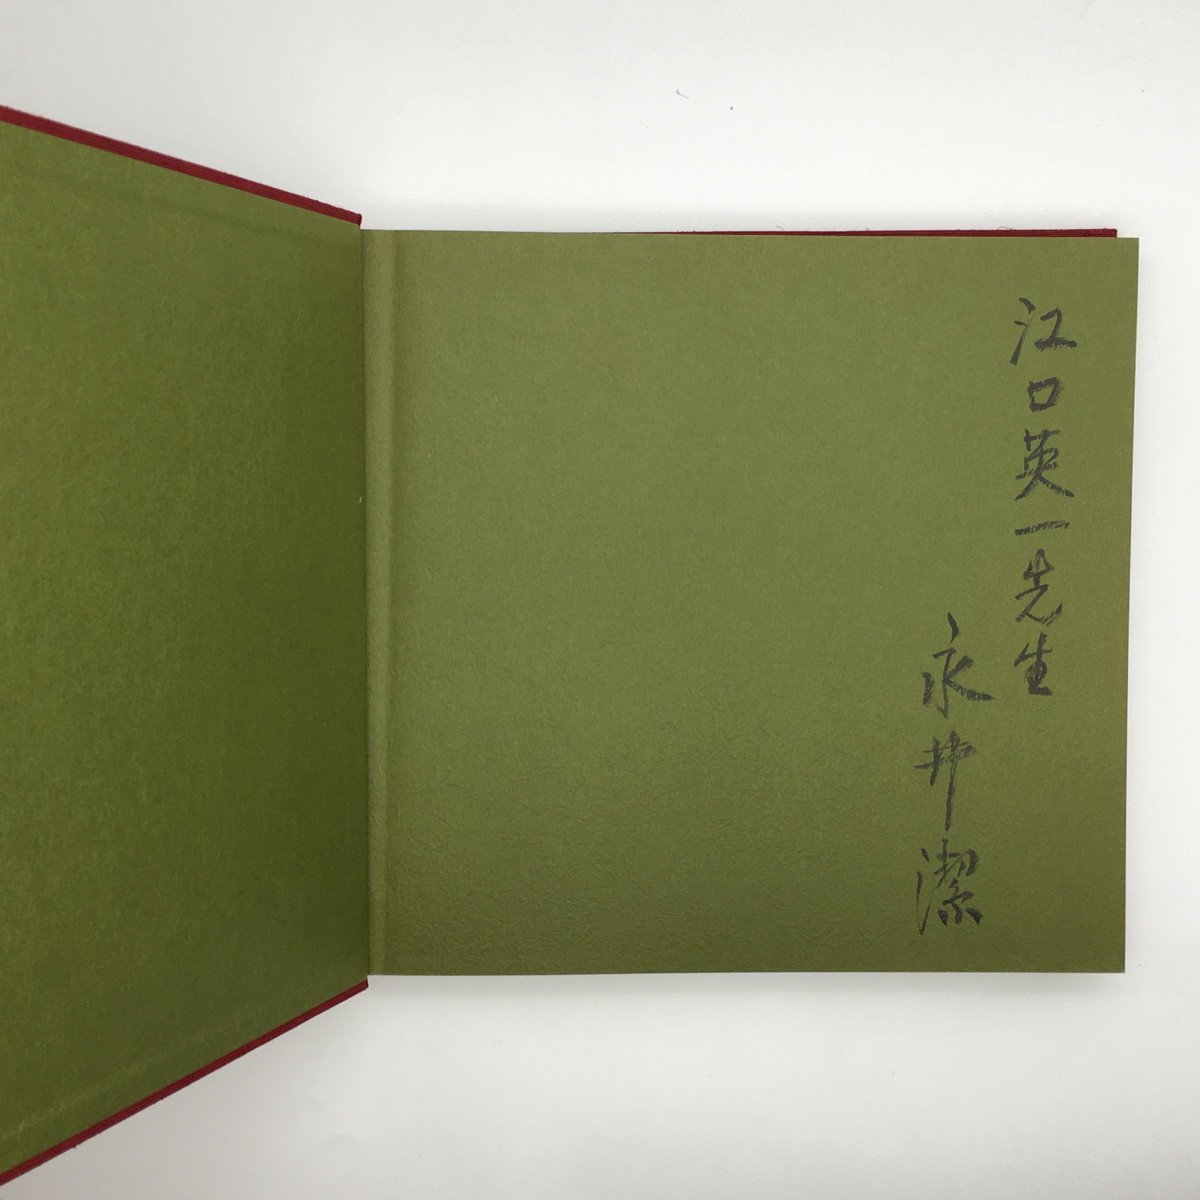 江口英一先生
永井潔